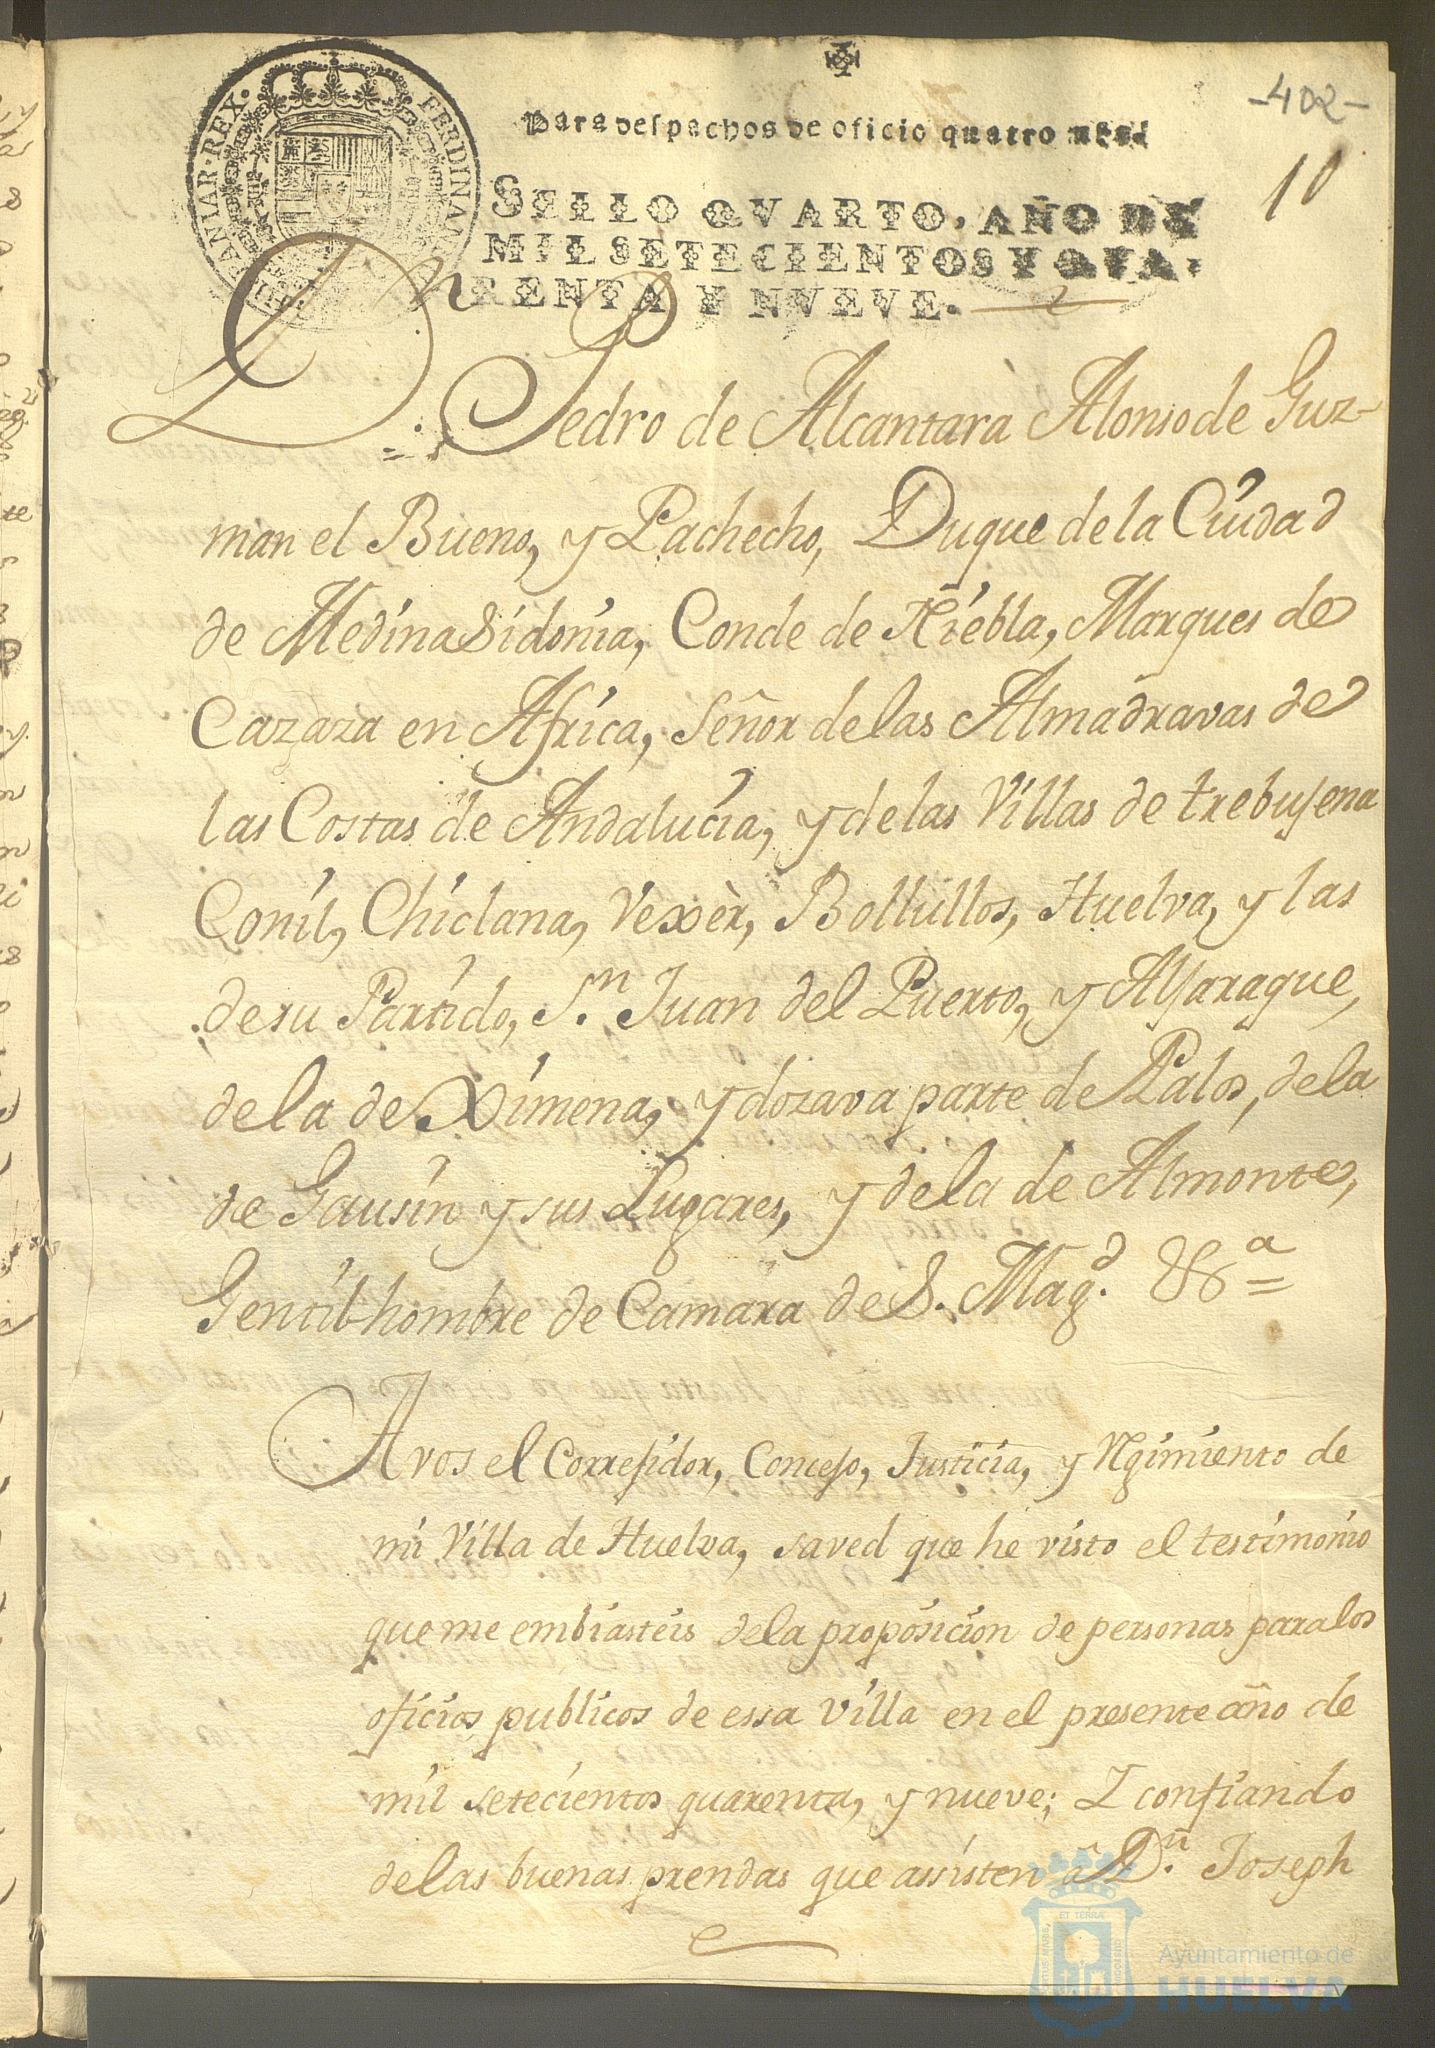 -402-
10
Para despachos de oficio quatro mrs.
SELLO QVARTO, AÑO DE
MIL SETECIENTOS Y QVA-
RENTA Y NVEVE.
FERDINAN
HISPANIAR·REX·
Dn Pedro de Alcantara Alonso de Guz-
man el Bueno, y Pachecho, Duque de la Ciudad
de Medina Sidonia, Conde de Niebla, Marques de
Cazaza en Africa, Señor de las Almadravas de
las Costas de Andalucia, y de las Villas de trebujena
Conil, Chiclana, Vexèr, Bollullos, Huelva, y las
de su Partido, Sn. Juan del Puerto, y Aljaraque,
de la de Ximena, y dozava parte de Palos, de la
de Gausin y sus Lugares, y de la de Almonte,
Gentil-hombre de Camara de S. Magd. &ª
A vos el Correjidor, Concejo, Justicia, y Rgimiento de
mi Villa de Huelva, saved que he visto el testimonio
que me embiasteis de la proposicion de personas para los
oficios publicos de essa Villa en el presente año de
mil setecientos quarenta, y nueve; I confiando
de las buenas prendas que assisten à Dn. Joseph
ET TERRÆ
Ayuntamiento de
HUELVA